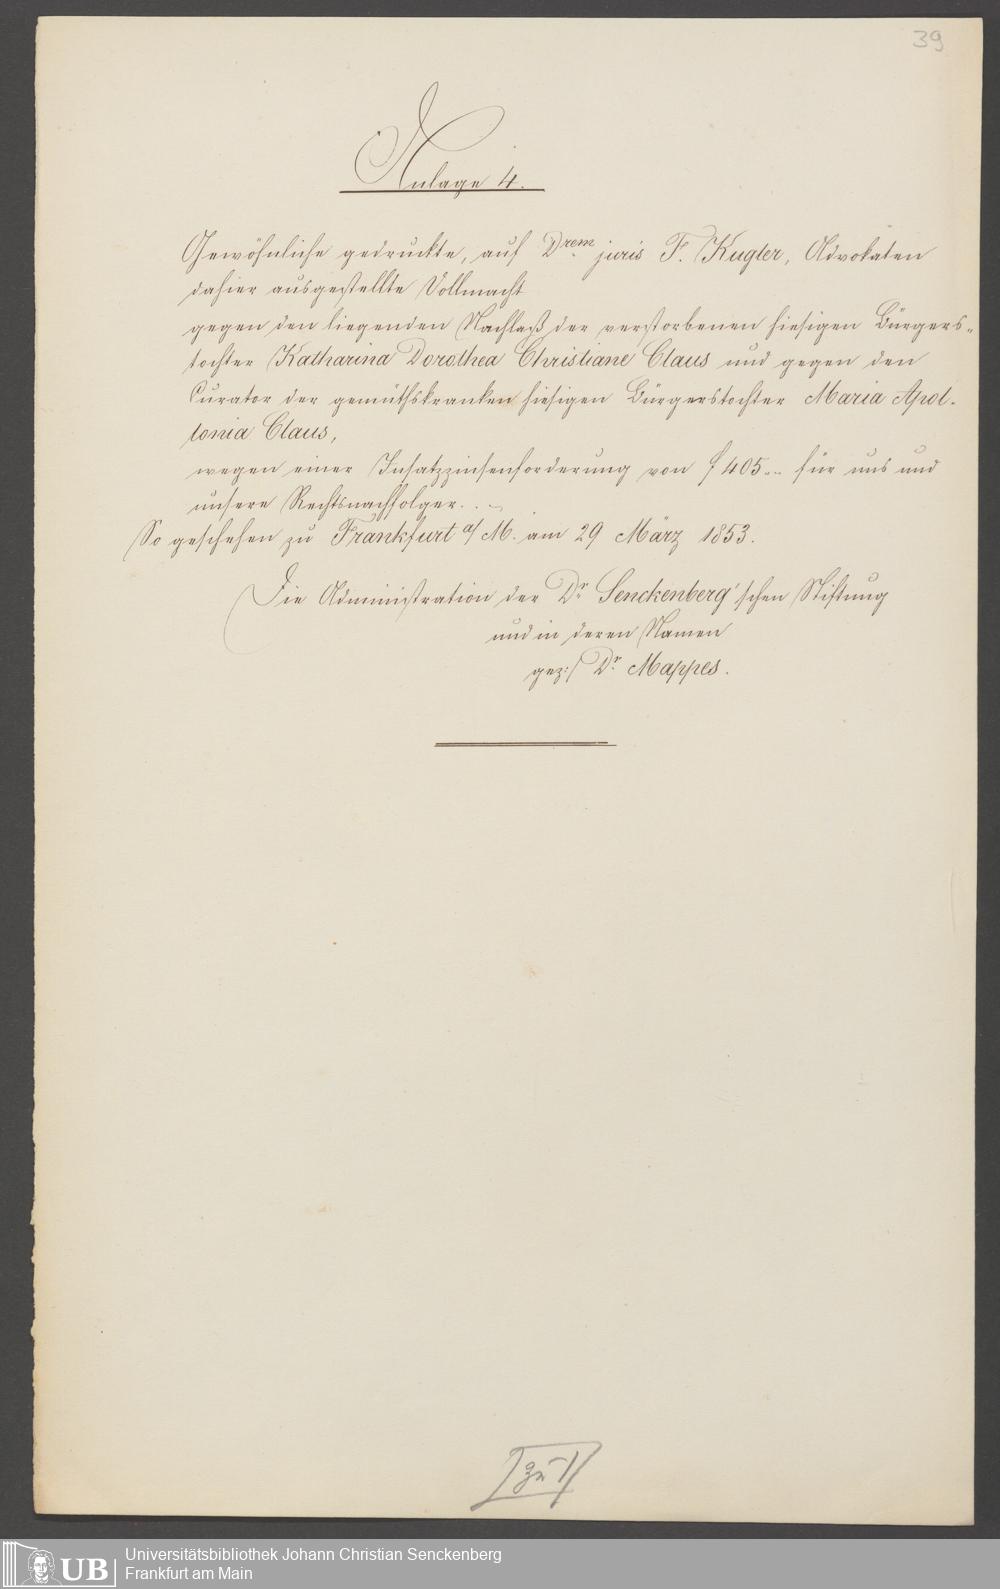 39
Anlage 4.
Gewöhnliche gedruckte, auf Drem juris F. Kugler, Advokaten
dahier ausgestellte Vollmacht
gegen den liegenden Nachlaß der verstorbenen hiesigen Bürgers-
tochter Katharina Dorothea Christiane Claus und gegen den
Curator der gemüthskranken hiesigen Bürgerstochter Maria Apol-
lonia Claus,
wegen einer Insatzzinsenforderung von f 405.-- für uns und
unsere Rechtsnachfolger. . ~
So geschehen zu Frankfurt a/M. am 29 März 1853.
Die Administration der Dr. Senckenberg'schen Stiftung
und in deren Namen
gez:/ Dr. Mappes.
[zu 1]
UB Universitätsbibliothek Johann Christian Senckenberg
Frankfurt am Main